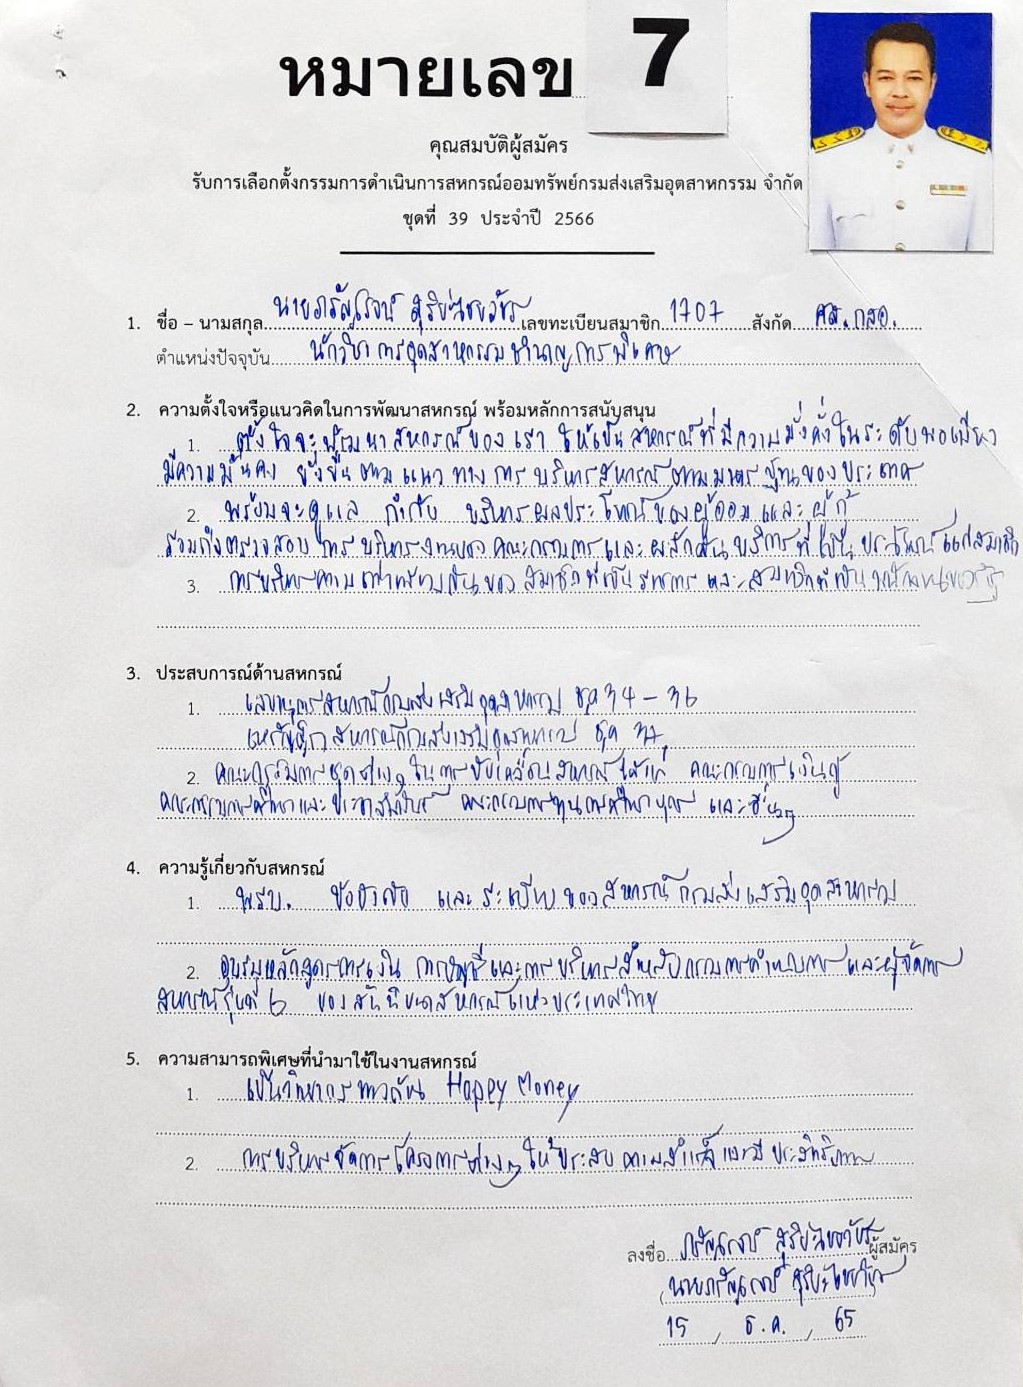 หมายเลข 7
คุณสมบัติผู้สมัคร
รับการเลือกตั้งกรรมการดำเนินการสหกรณ์ออมทรัพย์กรมส่งเสริมอุตสาหกรรม จำกัด
ชุดที่ 39 ประจำปี 2566
1. ชื่อ – นามสกุล นาย สุริยะไชยวัชร เลขทะเบียนสมาชิก 1707 สังกัด กสอ.
ตำแหน่งปัจจุบัน นักวิชาการอุตสาหกรรมชำนาญการพิเศษ
2. ความตั้งใจหรือแนวคิดในการพัฒนาสหกรณ์ พร้อมหลักการสนับสนุน
1. ตั้งใจจะพัฒนาสหกรณ์ของเรา ให้เป็นสหกรณ์ที่มีความมั่งคั่งในระดับพอเพียง
มีความมั่นคง ยั่งยืนตามแนวทางการบริหารสหกรณ์ตามมาตรฐานของประเทศ
2. พร้อมจะดูแล กำกับ บริหารผลประโยชน์ของผู้ออมและผู้กู้
รวมถึงตรวจสอบการบริหารงานของคณะกรรมการและผลักดันบริการที่เป็นประโยชน์แก่สมาชิก
3. การบริหารความเท่าเทียมกันของสมาชิกที่เป็นข้าราชการ และสมาชิกที่เป็นพนักงานของรัฐ
3. ประสบการณ์ด้านสหกรณ์
1. เลขานุการสหกรณ์กรมส่งเสริมอุตสาหกรรม ชุด 34 – 36
เหรัญญิกสหกรณ์กรมส่งเสริมอุตสาหกรรม ชุด 37
2. คณะกรรมการชุดต่างๆ ในการขับเคลื่อนสหกรณ์ ได้แก่ คณะกรรมการเงินกู้
คณะกรรมการศึกษาและประชาสัมพันธ์ คณะกรรมการทุนการศึกษาบุตร และอื่นๆ
4. ความรู้เกี่ยวกับสหกรณ์
1. พรบ. ข้อบังคับ และระเบียบของสหกรณ์กรมส่งเสริมอุตสาหกรรม
2. อบรมหลักสูตรการเงิน การบัญชีและการบริหารสำหรับกรรมการดำเนินการและผู้จัดการ
สหกรณ์รุ่นที่ 6 ของสันนิบาตสหกรณ์แห่งประเทศไทย
5. ความสามารถพิเศษที่นำมาใช้ในงานสหกรณ์
1. เป็นวิทยากร Happy Money
2. การบริหารจัดการโครงการต่างๆ ให้ประสบความสำเร็จและมีประสิทธิภาพ
ลงชื่อ สุริยะไชยวัชร ผู้สมัคร
(นาย สุริยะไชยวัชร)
15 / ธ.ค. / 65